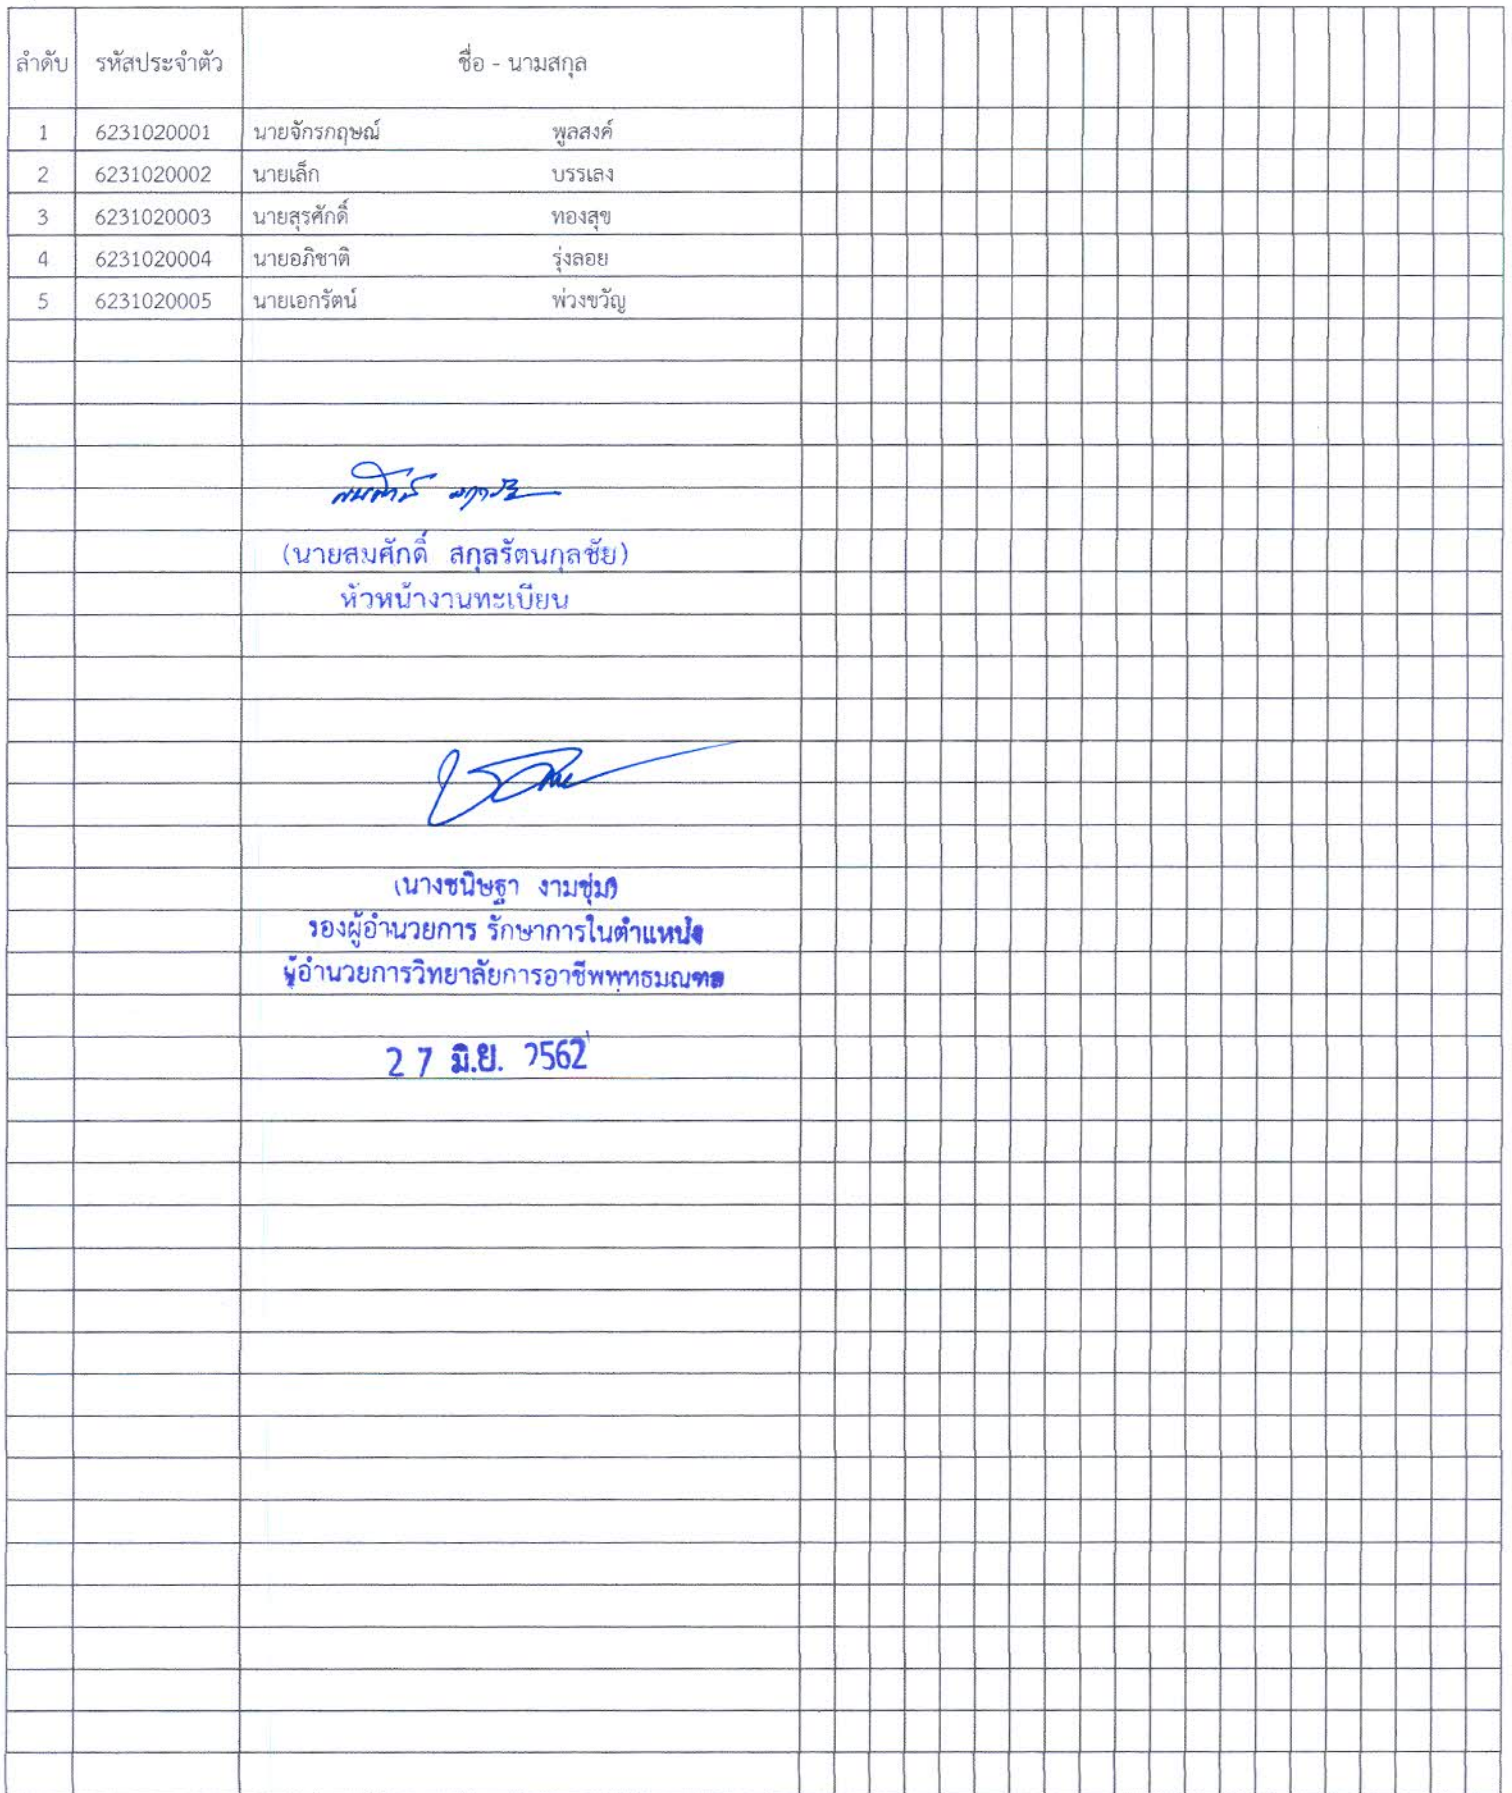 ลำดับ รหัสประจำตัว ชื่อ - นามสกุล
1 6231020001 นายจักรกฤษณ์ พูลสงค์
2 6231020002 นายเล็ก บรรเลง
3 6231020003 นายสุรศักดิ์ ทองสุข
4 6231020004 นายอภิชาติ รุ่งลอย
5 6231020005 นายเอกรัตน์ พ่วงขวัญ
(นายสมศักดิ์ สกุลรัตนกุลชัย)
หัวหน้างานทะเบียน
(นางชนิษฐา งามชุ่ม)
รองผู้อำนวยการ รักษาการในตำแหน่ง
ผู้อำนวยการวิทยาลัยการอาชีพพุทธมณฑล
27 มิ.ย. 2562